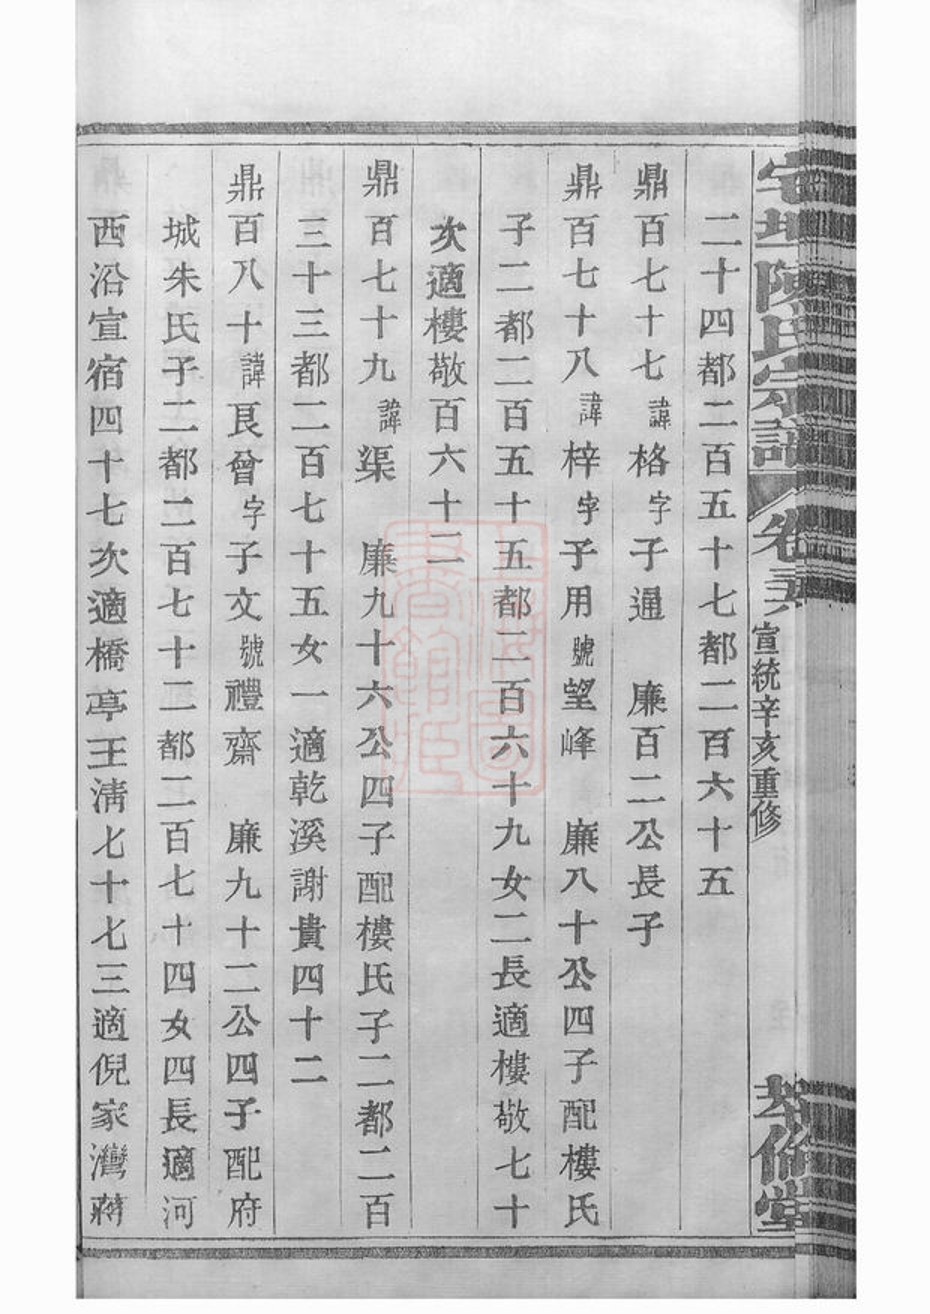 宅埠陳氏宗譜 卷 宣統辛亥重修
堂
二十四都二百五十七都二百六十五
鼎百七十七諱格字子通 廉百二公長子
鼎百七十八諱梓字子用號望峰 廉八十公四子配樓氏
子二都二百五十五都二百六十九女二長適樓敬七十
次適樓敬百六十二
鼎百七十九諱渠 廉九十六公四子配樓氏子二都二百
三十三都二百七十五女一適乾溪謝貴四十二
鼎百八十諱艮曾字子文號禮齋 廉九十二公四子配府
城朱氏子二都二百七十二都二百七十四女四長適河
西沿宣宿四十七次適橋亭王淸七十七三適倪家灣蔣